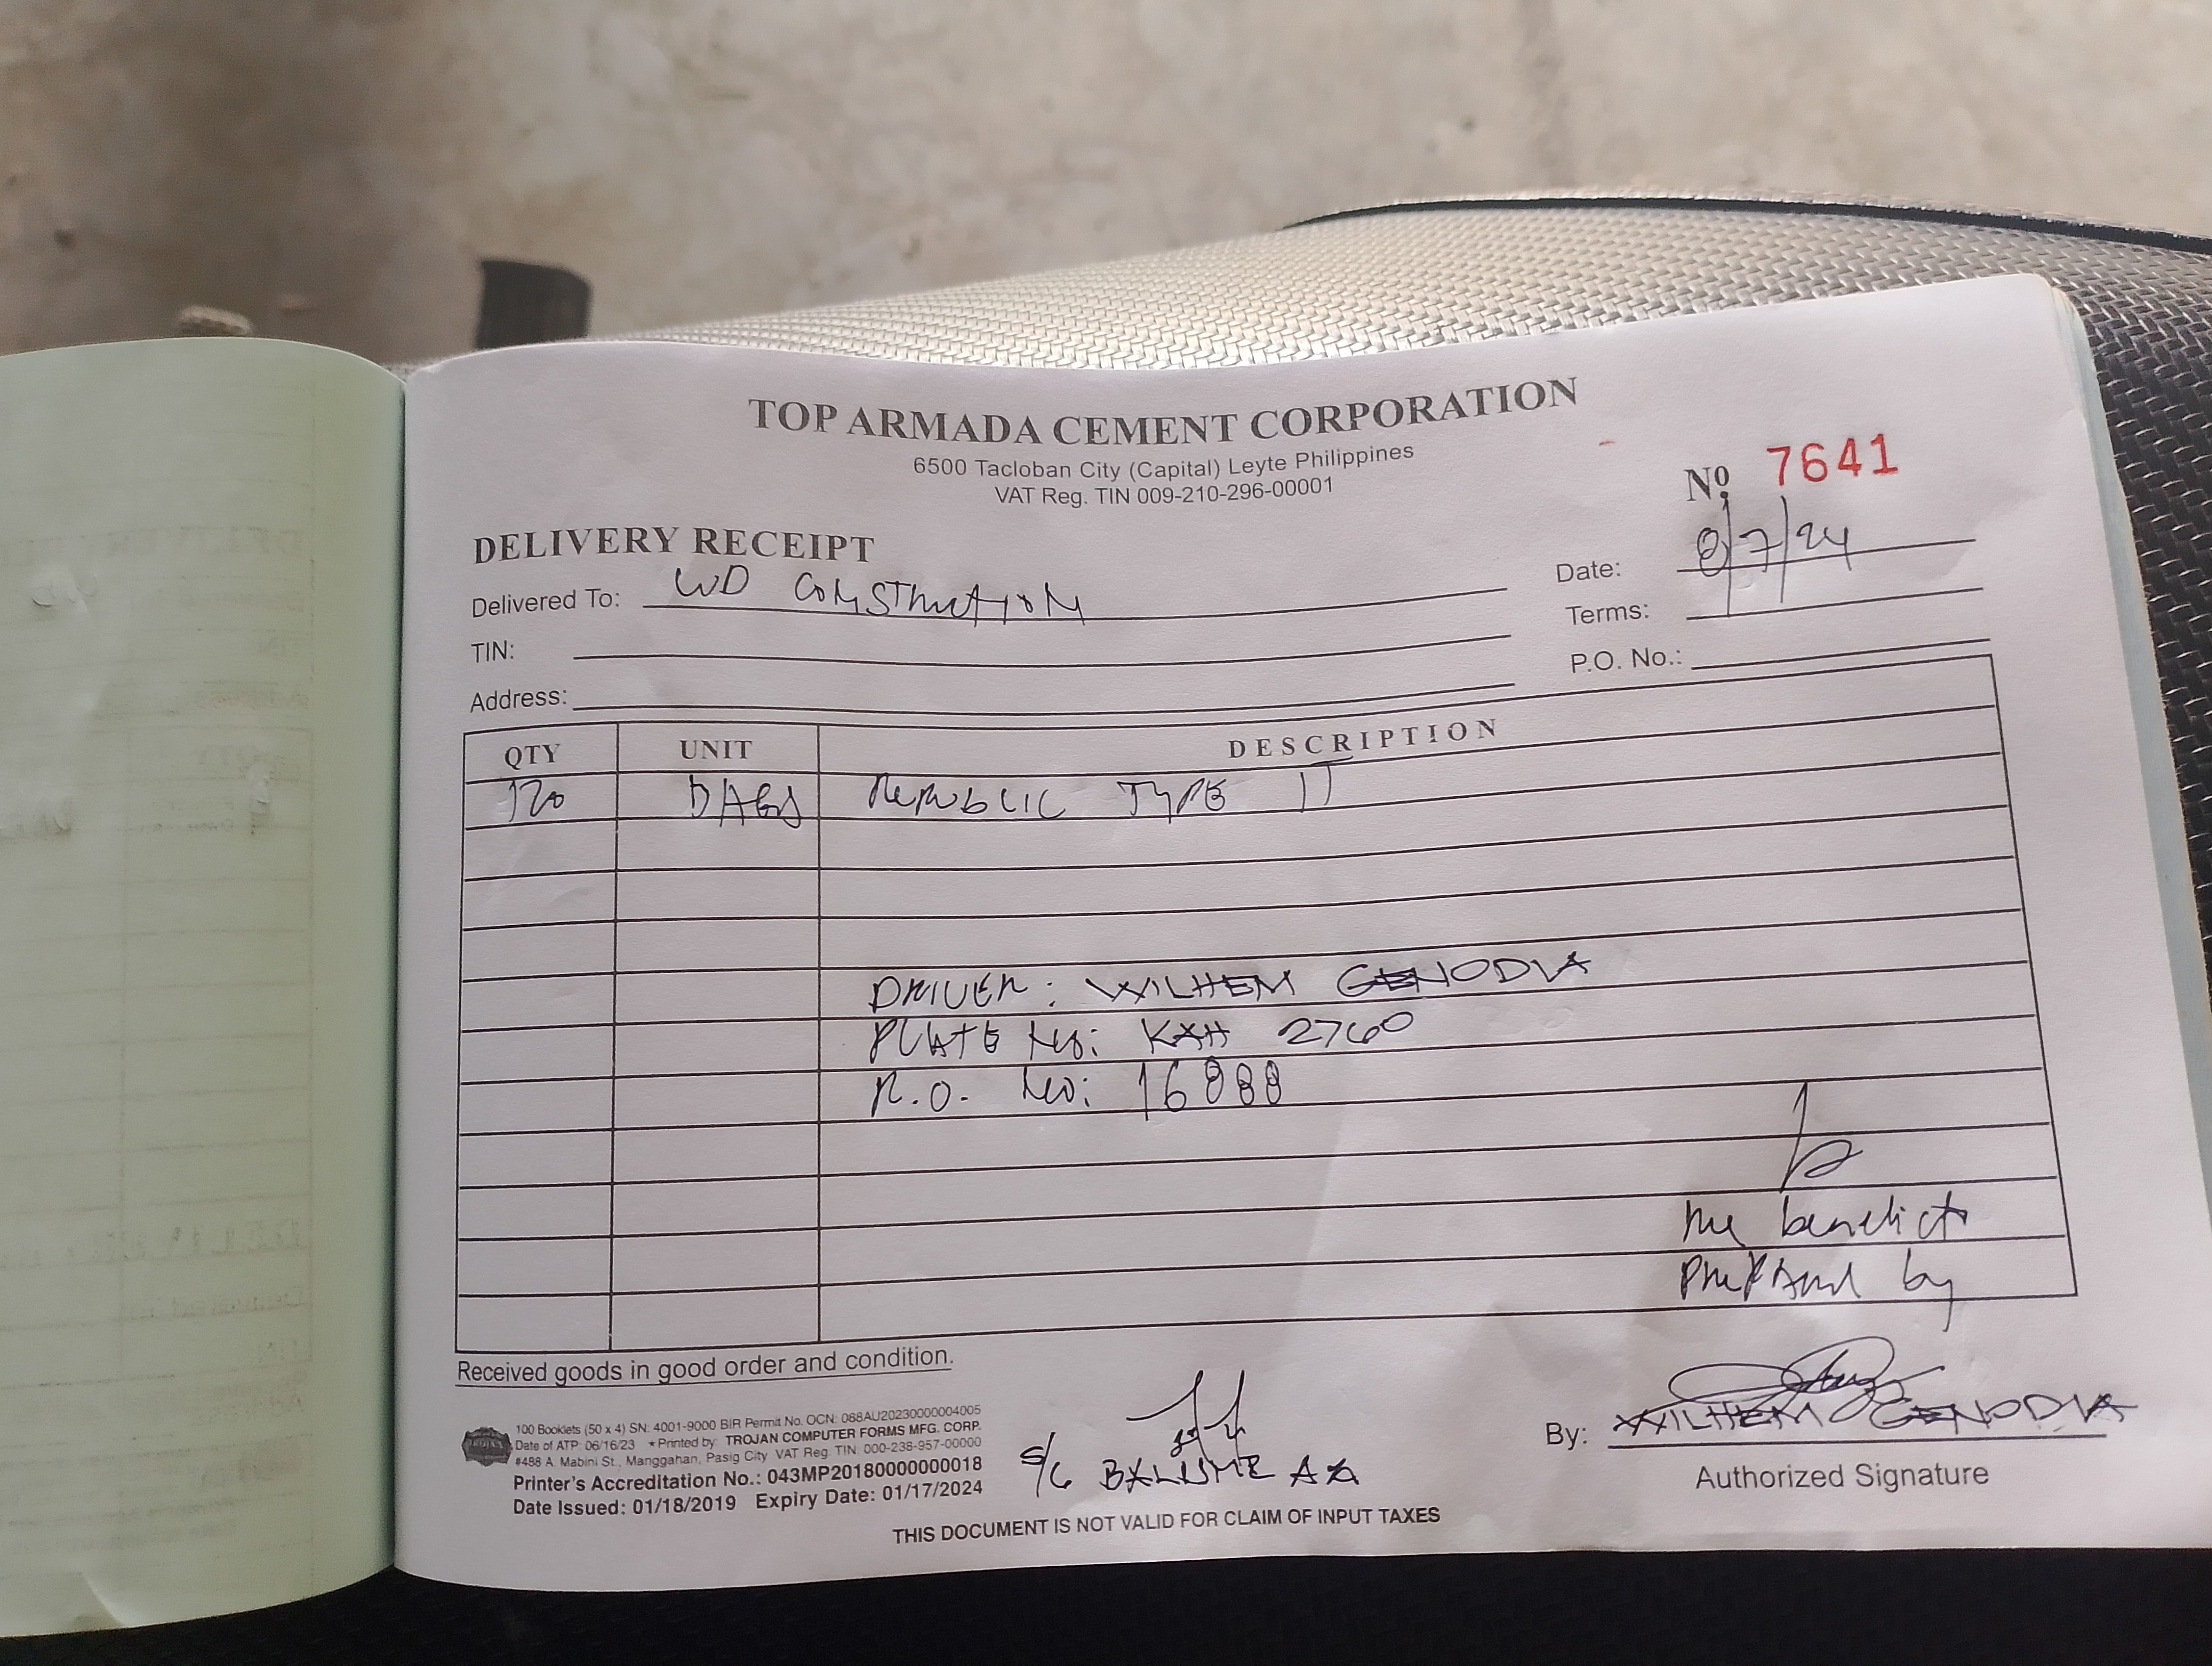 TOP ARMADA CEMENT CORPORATION
6500 Tacloban City (Capital) Leyte Philippines
VAT Reg. TIN 009-210-296-00001
Nº 7641
DELIVERY RECEIPT
Date: 8/7/24
Delivered To: WD CONSTRUCTION
Terms:
TIN:
P.O. No.:
Address:
QTY UNIT DESCRIPTION
120 BAGS REPUBLIC TYPE 1T
DRIVER: WILHEM GENODIA
PLATE No: KAH 2760
R.O. No: 16888
benedict
Prepared by
Received goods in good order and condition.
100 Booklets (50 x 4) SN: 4001-9000 BIR Permit No. OCN: 088AU20230000004005
Date of ATP: 06/16/23 ★Printed by: TROJAN COMPUTER FORMS MFG. CORP.
#488 A. Mabini St., Manggahan, Pasig City VAT Reg. TIN: 000-238-957-00000
Printer's Accreditation No.: 043MP20180000000018
Date Issued: 01/18/2019 Expiry Date: 01/17/2024
S/G
By: WILHEM GENODIA
Authorized Signature
THIS DOCUMENT IS NOT VALID FOR CLAIM OF INPUT TAXES